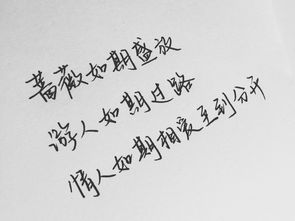 蔷薇如期盛放
游人如期过路
情人如期相爱至到分开